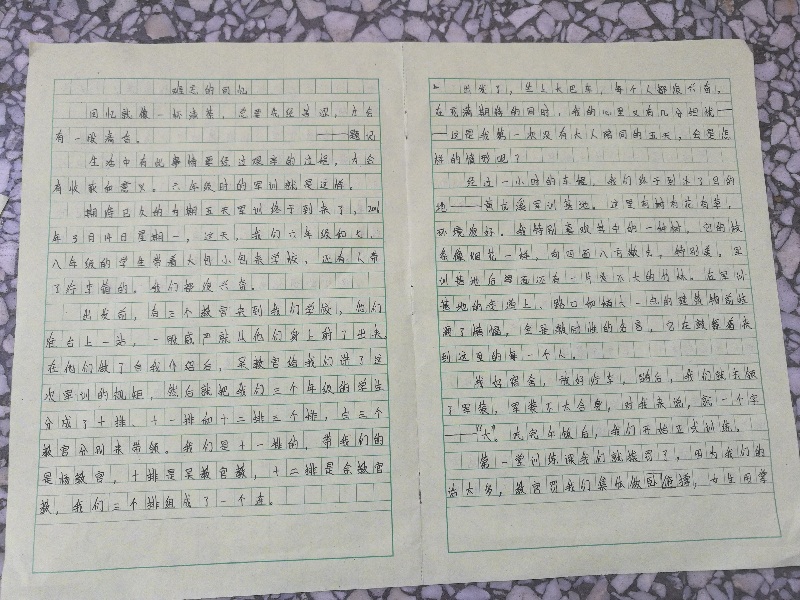 难忘的回忆
回忆就像一杯清茶，总要先经苦涩，才会
有一股清香。 ——题记
生活中有些事情要经过艰辛的过程，才会
有收获和意义。六年级时的军训就是这样。
期待已久的为期五天军训终于到来了，2016
年3月14日星期一，这天，我们六年级和七、
八年级的学生带着大包小包来学校，还有人带
了行李箱的。我们都很兴奋。
出发前，有三个教官来到我们学校，他们
在台上一站，一股威严就从他们身上射了出来。
在他们做了自我介绍后，吴教官给我们讲了这
次军训的规矩，然后就把我们三个年级的学生
分成了十排、十一排和十二排三个排，由三个
教官分别来带领。我们是十一排的，带我们的
是杨教官，十排是吴教官教，十二排是余教官
教，我们三个排组成了一个连。
出发了，坐上大巴车，每个人都很兴奋，
在充满期待的同时，我的心里又有几分担忧——
——这是我第一次没有大人陪同的五天，会是怎
样的情形呢？
经过一小时的车程，我们终于到达了目的
地——黄花溪军训基地。这里有树木花有草，
环境很好。我特别喜欢其中的一种树，它的枝
条像烟花一样，向四面八方散去，特别美。军
训基地后面还有一片是不大的竹林。在军训
基地的走廊上、路口和柱子一点的建筑物前都
有了横幅，全是教时做的名言，它在鼓舞着来
到这里的每一个人。
找好宿舍，放好行李，随后，我们就去领
了军装，军装不太合身，对我来说，就一个字
——“大”。大完午饭后，我们开始正式训练。
第一堂训练课我们就挨罚了，因为我们的
话太多，教官罚我们集体做俯卧撑，女生同学